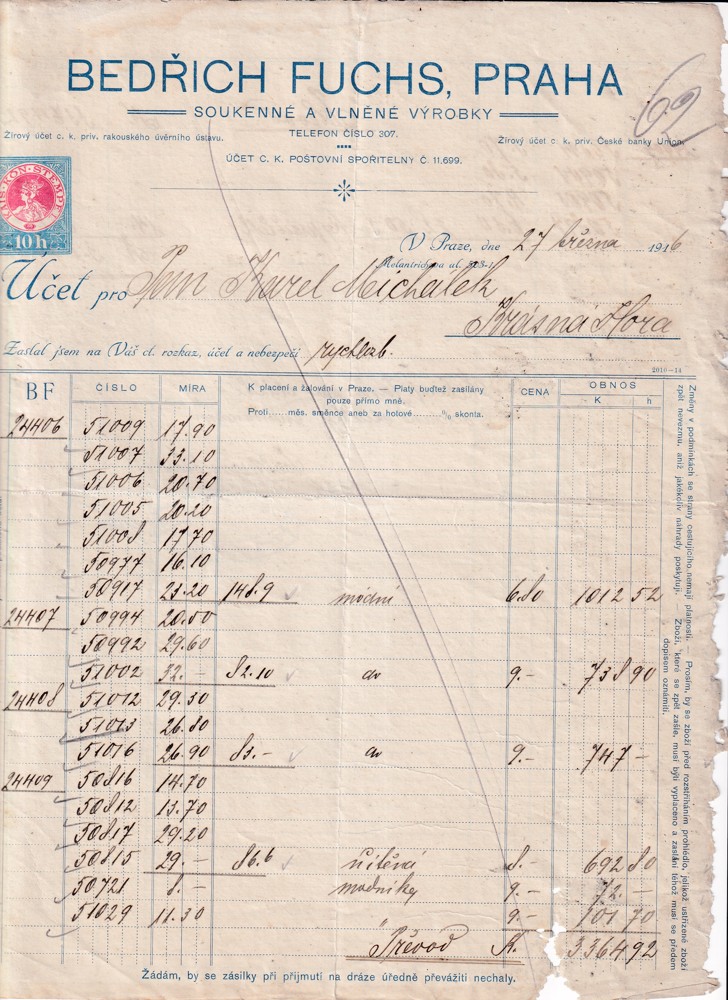 62
BEDŘICH FUCHS, PRAHA
SOUKENNÉ A VLNĚNÉ VÝROBKY
Žírový účet c. k. priv. rakouského úvěrního ústavu.
TELEFON ČÍSLO 307.
Žírový účet c. k. priv. České banky Union.
ÚČET C. K. POŠTOVNÍ SPOŘITELNY Č. 11,699.
10 h
V Praze, dne 27 března 1916
Melantrichova ul.
Účet pro Pan Karel Michálek
Krásná Hora
Zaslal jsem na Váš ct. rozkaz, účet a nebezpečí rychlob.
2010-14
BF ČÍSLO MÍRA K placení a žalování v Praze. — Platy buďtež zasílány CENA OBNOS
pouze přímo mně. K h
Proti......měs. směnce aneb za hotové......% skonta.
24406 51009 17.90
51007 33.10
51006 20.70
51005 20.20
51008 17.70
50977 16.10
50917 23.20 148.9 módní 6.80 1012 52
24407 50994 20.50
50992 29.60
51002 32.— 82.10 do 9.- 738 90
24408 51012 29.30
51013 26.80
51016 26.90 83.— do 9.- 747 -
24409 50816 14.70
50812 13.70
50817 29.20
50815 29.— 86.6 8.- 692 80
50721 8.— modniky 9.- 72.-
51029 11.30 " 9.- 101 70
Převod K. 3364 92
Žádám, by se zásilky při přijmutí na dráze úředně převážiti nechaly.
Změny v podmínkách se strany cestujícího nemají platnosti. — Prosím, by se zboží před rozstříháním prohlédlo, jelikož ustřižené zboží
zpět nevezmu, aniž jakékoliv náhrady poskytuji. — Zboží, které se zpět zašle, musí býti vyplaceno a zaslání téhož musí se předem
dopisem oznámiti.